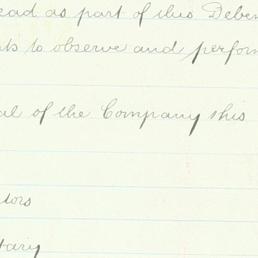 ead as part of this Deben
ts to observe and perfor
al of the Company this
tors
tary